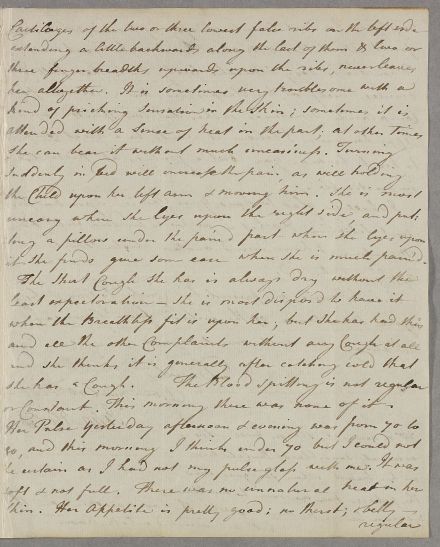 Cartilages of the two or three lowest false ribs on the left side
extending a little backwards along the last of them & two or
three finger breadths upwards upon the ribs, never leaves
her altogether. It is sometimes very troublesome with a
kind of pricking Sensation in the Skin; sometimes it is
attended with a Sense of heat in the part, at other times
she can bear it without much uneasiness. Turning
suddenly in Bed will increase the pain, as will holding
the Child upon her left arm & moving him. She is most
uneasy when she lyes upon the right side, and put-
ting a pillow under the pain'd part when she lyes upon
it she finds give some ease when she is much pain'd.
The Short Cough she has is always dry without the
least expectoration — she is most dispos'd to have it
when the Breathless fit is upon her, but she has had this
and all the other Complaints without any Cough at all
and she thinks it is generally after catching cold that
she has a Cough. The Blood Spitting is not regular
or Constant. This morning there was none of it
Her Pulse Yesterday afternoon & evening was from 70 to
80, and this morning I think under 70 but I could not
be certain as I had not my pulse glass with me. It was
soft & not full. There was no unnatural heat in her
Skin. Her Appetite is pretty good; no thirst; belly —
regular